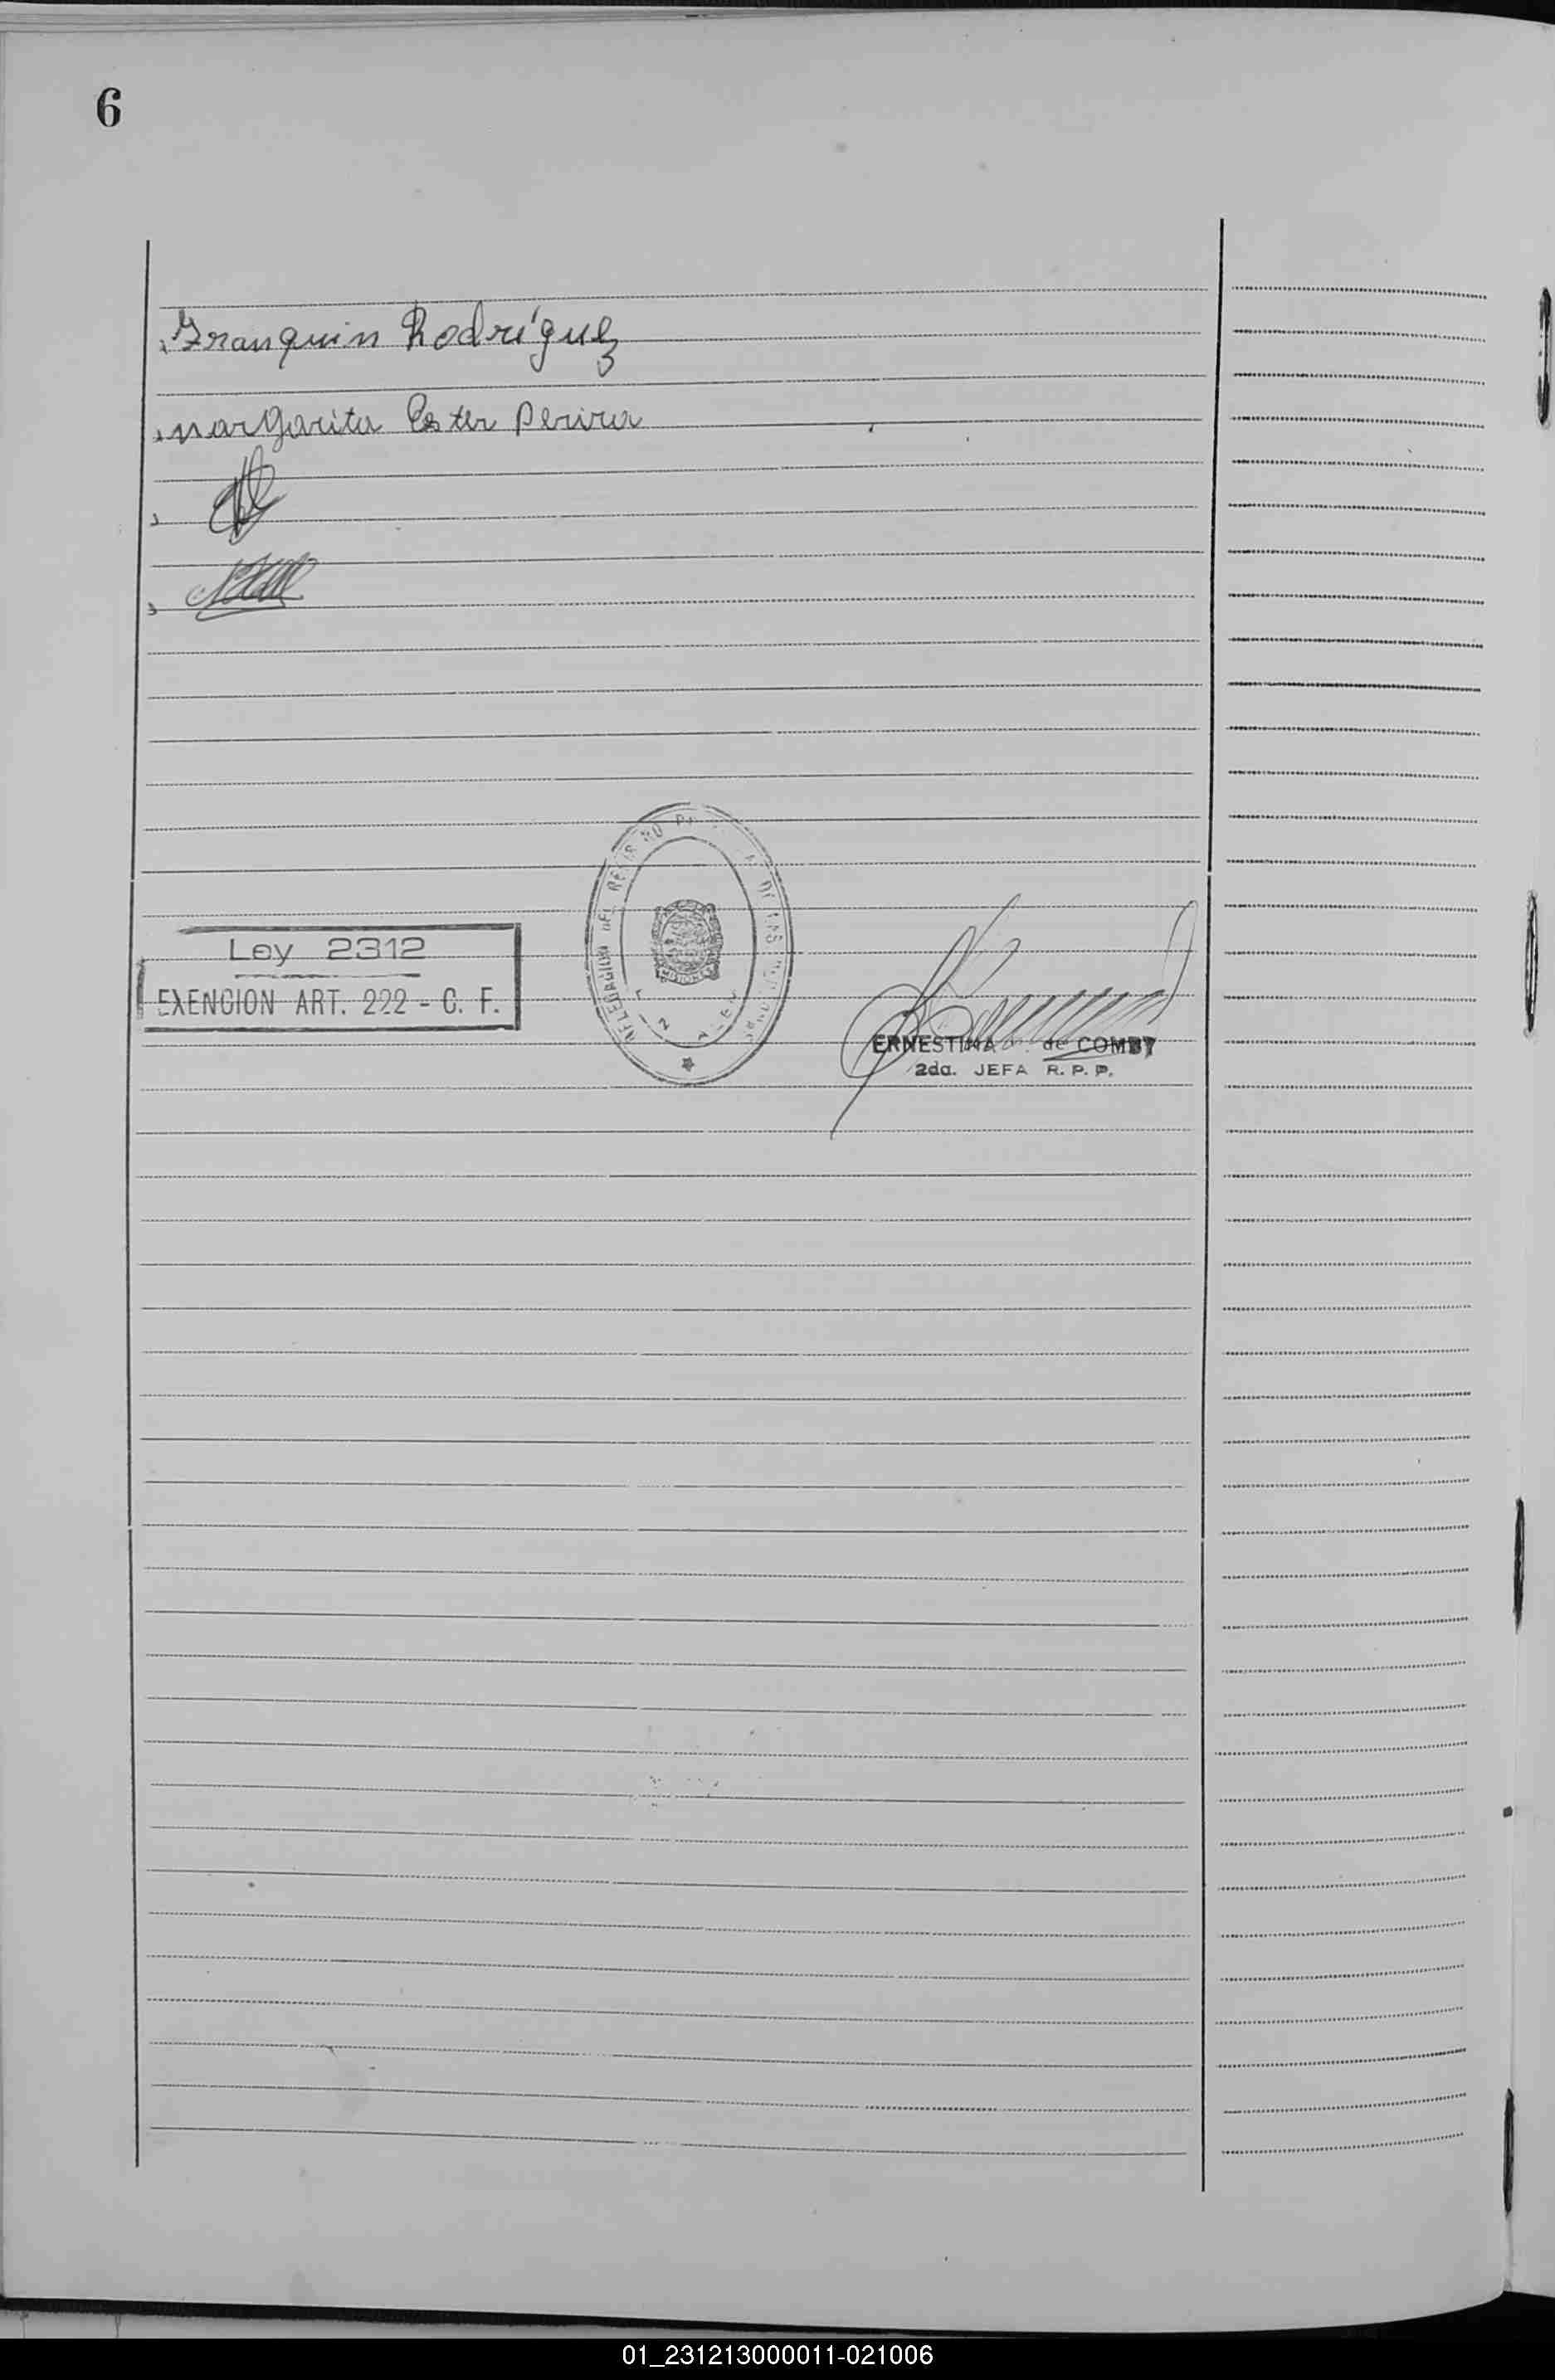 6
Franquin Rodríguez
margarita Ester Perira
Ley 2312
EXENCION ART. 222 - C. F.
DELEGACION DEL REGISTRO
MISIONES
ERNESTINA de COMBY
2da. JEFA R. P. P.
01_231213000011-021006